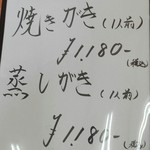 焼きがき(1人前)
¥1,180-
(税込)
蒸しがき(1人前)
¥1,180-
(税込)